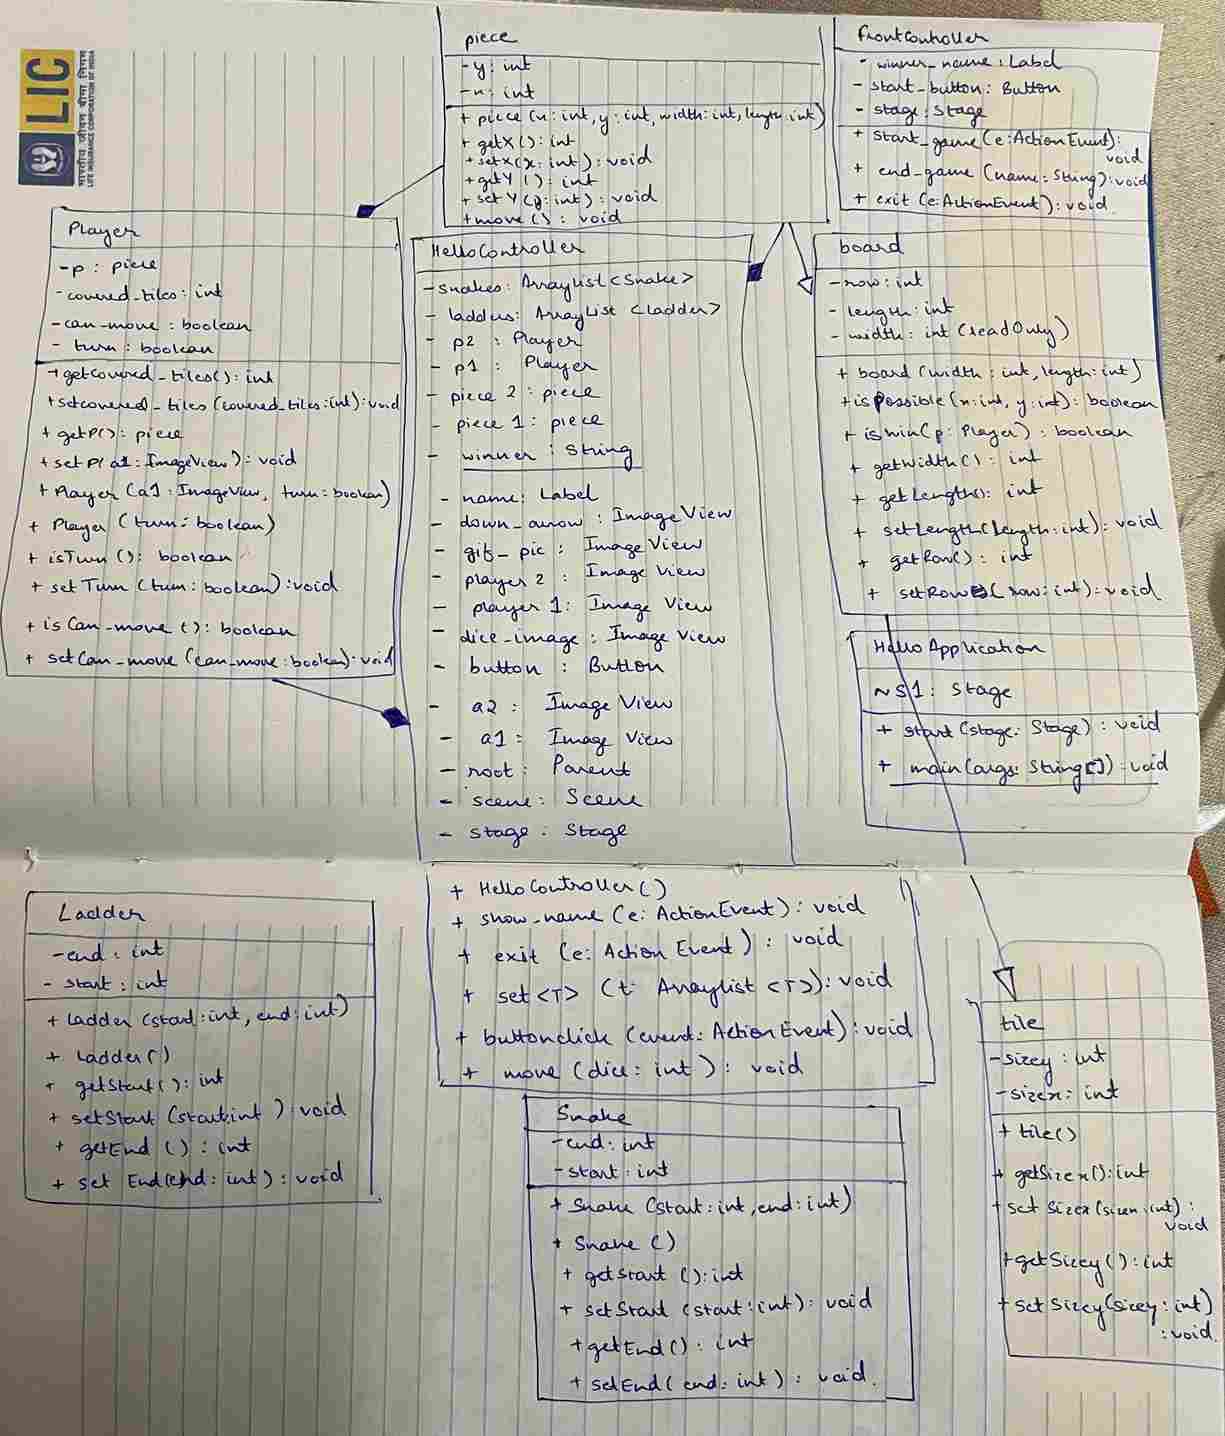 LIC
भारतीय जीवन बीमा निगम
LIFE INSURANCE CORPORATION OF INDIA
piece
- y: int
- x: int
+ piece (x: int, y: int, width: int, length: int)
+ getX(): int
+ setX(x: int): void
+ getY(): int
+ setY(y: int): void
+ move(): void
frontController
- winner_name: Label
- start_button: Button
- stage: Stage
+ start_game(e: ActionEvent):
void
+ end_game (name: String): void
+ exit (e: ActionEvent): void
Player
- p: piece
- covered_tiles: int
- can_move: boolean
- turn: boolean
+ getcovered_tiles(): int
+ setcovered_tiles (covered_tiles: int): void
+ getP(): piece
+ setP(a1: ImageView): void
+ Player (a1: ImageView, turn: boolean)
+ Player (turn: boolean)
+ isTurn(): boolean
+ setTurn (turn: boolean): void
+ isCan_move (): boolean
+ setCan_move (can_move: boolean): void
HelloController
- snakes: ArrayList <Snake>
- ladders: ArrayList <Ladder>
- p2 : Player
- p1 : Player
- piece 2 : piece
- piece 1 : piece
- winner : String
- name: Label
- down_arrow : ImageView
- gif_pic : ImageView
- player 2 : Image View
- player 1 : Image View
- dice_image : Image View
- button : Button
- a2 : Image View
- a1 : Image View
- root : Parent
- scene : Scene
- stage : Stage
+ HelloController()
+ show_name (e: ActionEvent): void
+ exit (e: Action Event): void
+ set <T> (t: Arraylist <T>): void
+ buttonclick (event: ActionEvent): void
+ move (dice: int): void
board
- row: int
- length: int
- width: int (readOnly)
+ board (width: int, length: int)
+ ispossible (x: int, y: int): boolean
+ iswin(p: Player): boolean
+ getWidth(): int
+ getLength(): int
+ setLength(length: int): void
+ getRow(): int
+ setRow (row: int): void
Hello Application
~ s1: Stage
+ start (stage: Stage): void
+ main (args: String[]): void
Ladder
- end: int
- start: int
+ Ladder (start: int, end: int)
+ Ladder()
+ getStart(): int
+ setStart (start: int): void
+ getEnd (): int
+ set End(end: int): void
Snake
- end: int
- start: int
+ Snake (start: int, end: int)
+ Snake ()
+ getStart (): int
+ setStart (start: int): void
+ getEnd(): int
+ setEnd( end: int): void.
tile
- sizey : int
- sizex : int
+ tile()
+ getSizex(): int
+ set Sizex (sizex: int):
void
+ getSizey(): int
+ set Sizey(sizey: int)
: void.